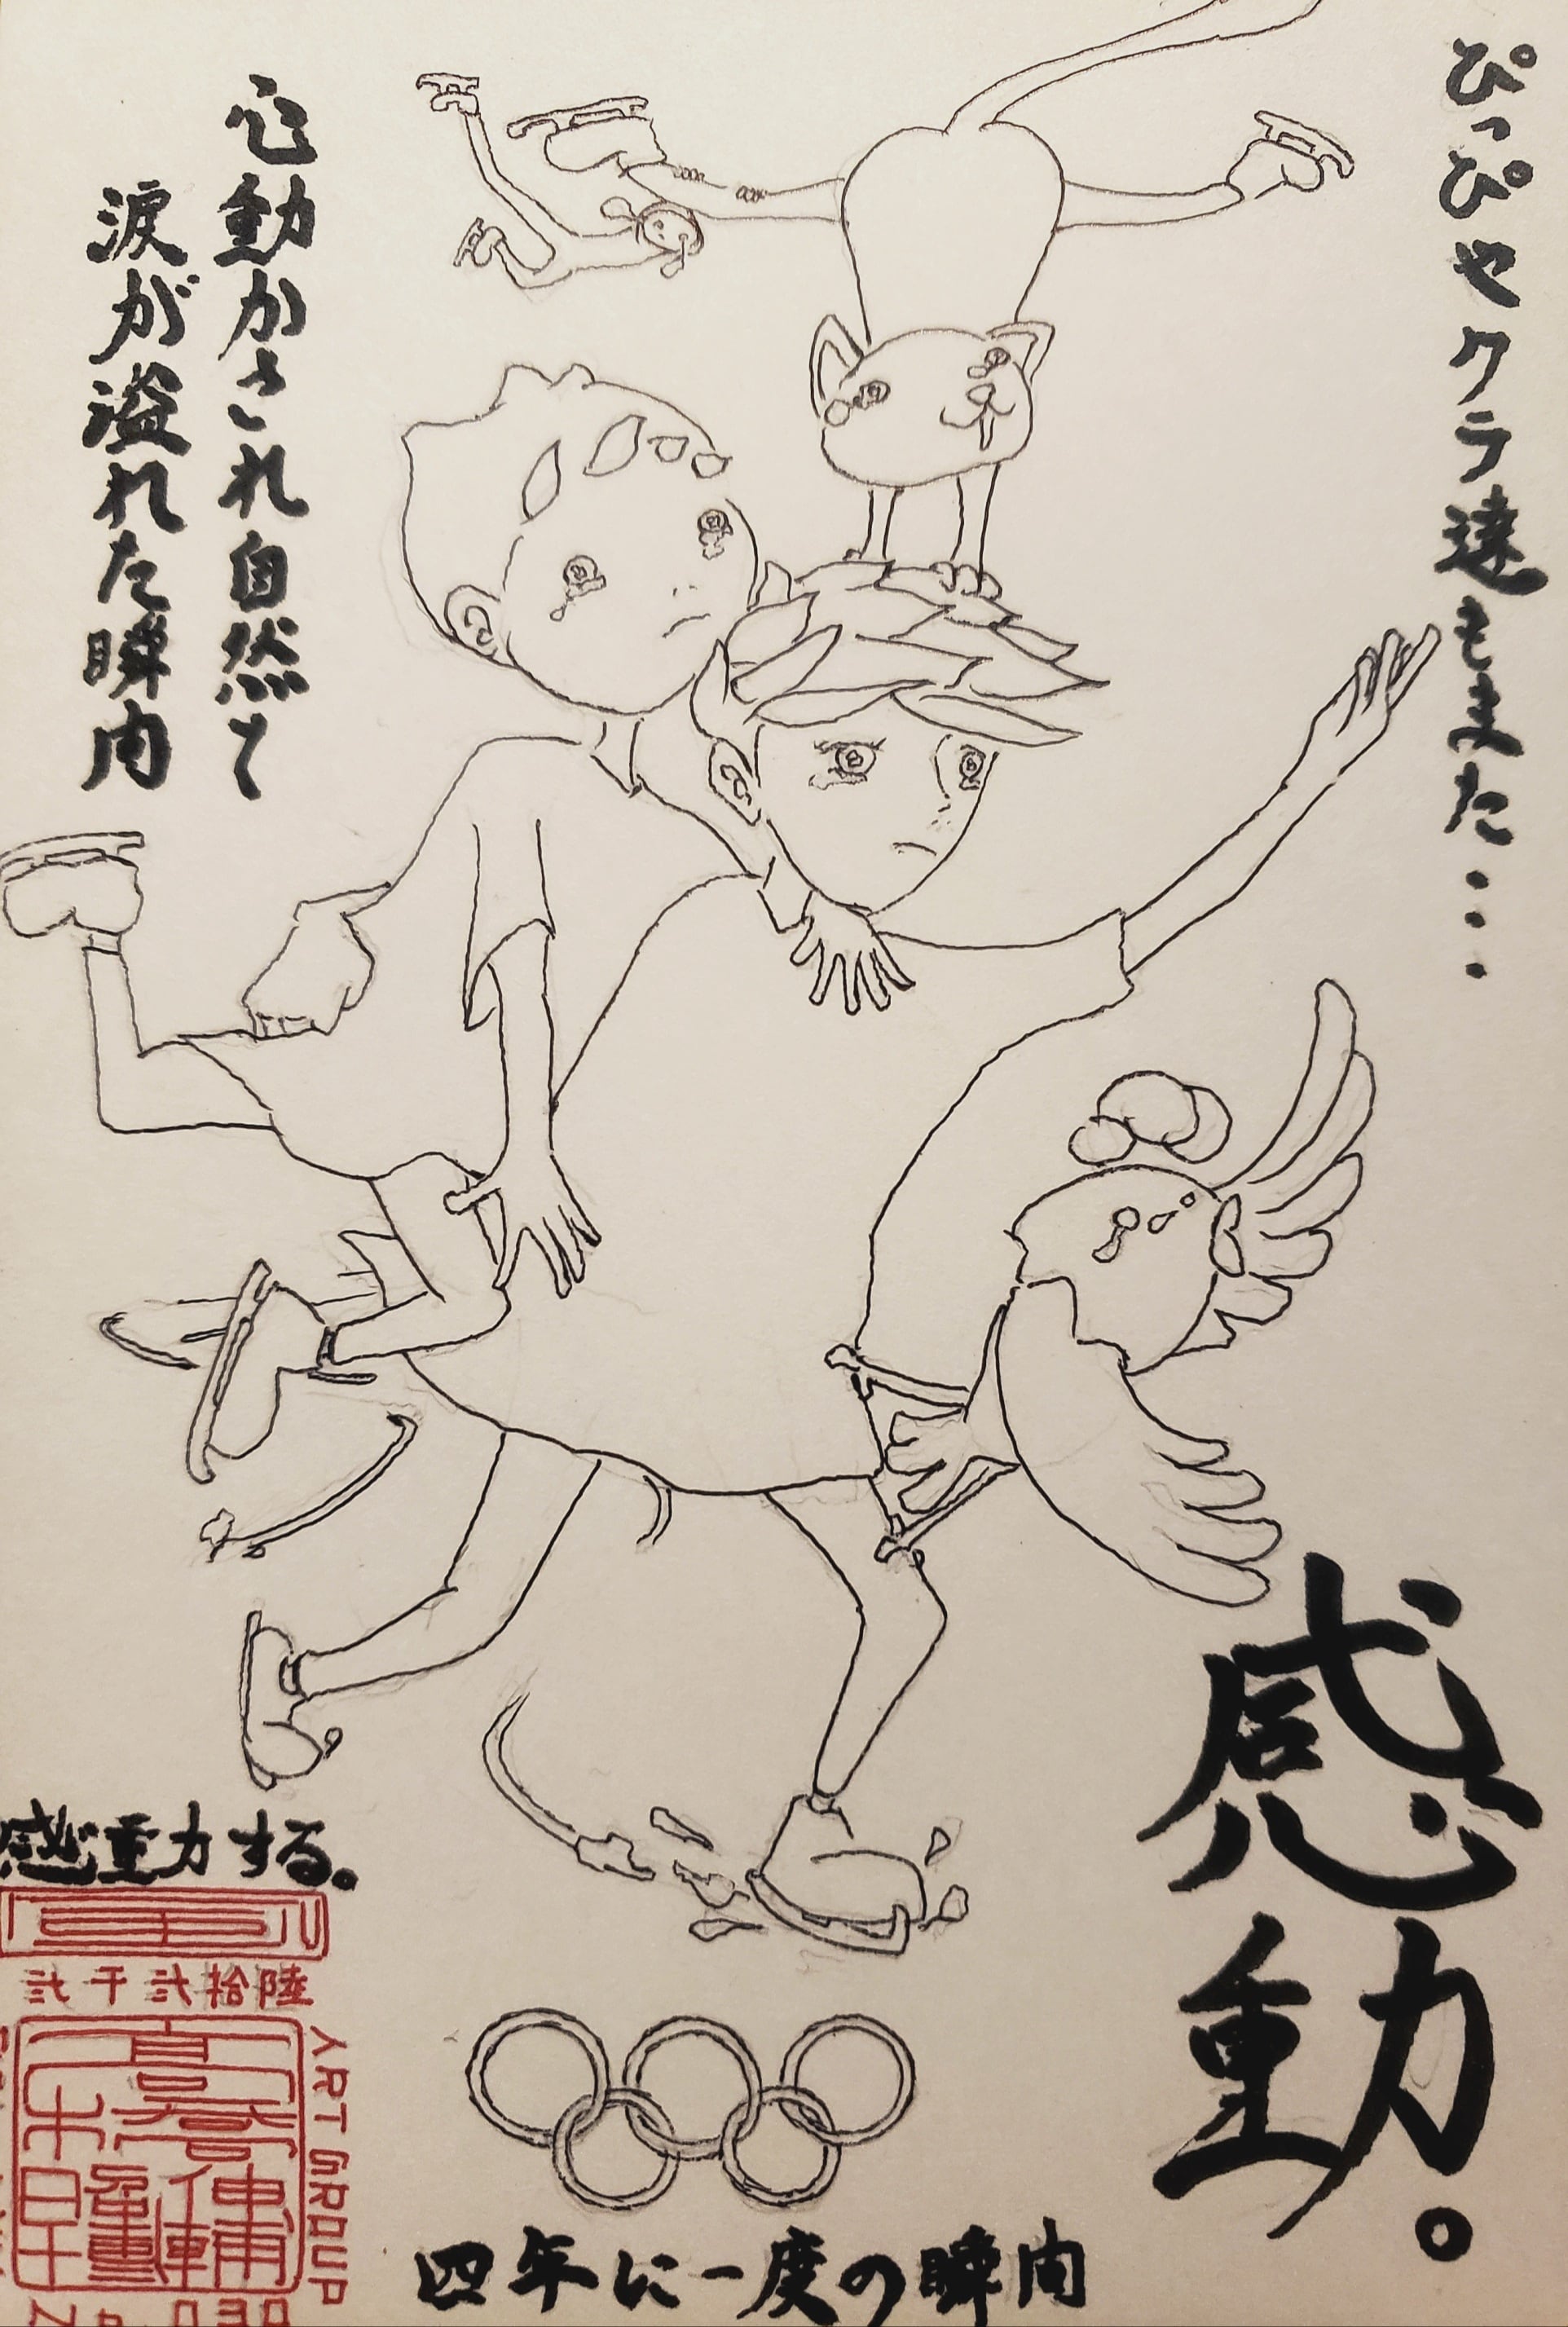 ぴっぴやクララ達もまた・・・
心動かされ自然て
涙が溢れた瞬間
感動。
感動する。
弐千弐拾陸
ART GROUP
四年に一度の瞬間